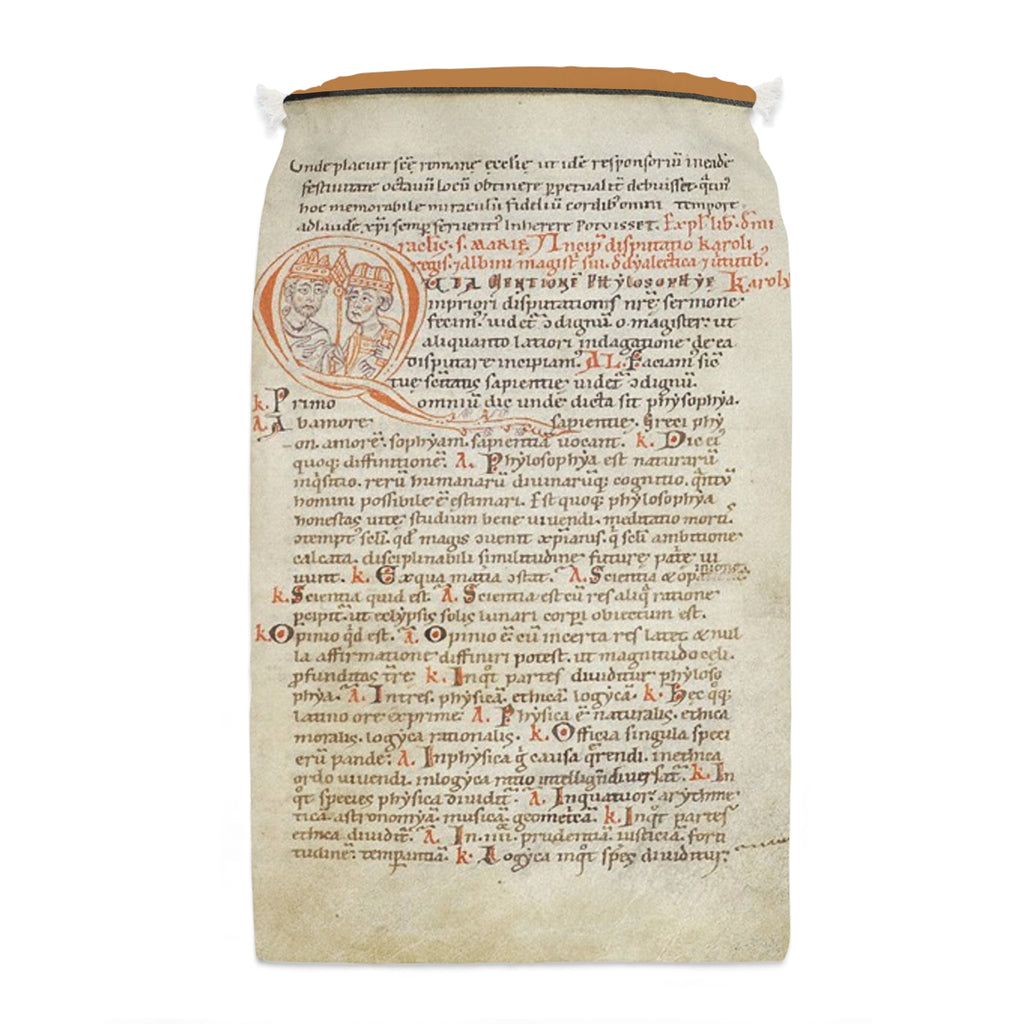 Unde placuit scẽ romane eccłie ut idẽ responsoriũ in eadẽ
festiuitate octauũ locũ obtinere ppetualit̃ debuisset. q̃tin⁹
hoc memorabile miraculũ fideliũ cordib' omni tempore
ad laudẽ xp̃i semp seruenti inherere potuisset. Expl' lib. d̃ mi
raclis. s. MARIE. Incip̃ disputatio karoli
regis. ⁊ albini magist̃ sui. d̃ dyalectica ⁊ uirtutib'.
QUIA MENTIONẼ PHYLOSOPHYE Karol⁹
in priori disputationis nrẽ sermone
fecim⁹. uidet̃ ɔdignũ o magister. ut
aliquanto latiori indagatione de ea
disputare incipiam. AL. Faciam sic̃
tuę scẽ sapientię uidet̃ ɔdignũ.
k. Primo omniũ dic unde dicta sit phỳsophỳa.
A. Ab amore sapientie. Greci phỳ
on. amorẽ. sophỳam. sapientiã uocant. k. Dic ei
quoq; diffinitionẽ. A. Phỳlosophỳa est naturarũ
inq̃sitio. rerũ humanarũ diuinarũq; cognitio. q̃ntũ
homini possibile ẽ estimari. Est quoq; phỳlosophỳa
honestas uitę. studium bene uiuendi. meditatio mortis.
ɔtempt⁹ scłi. qd̃ magis ɔuenit xp̃ianis. q̃ scłi ambitione
calcata. disciplinabili similitudine future pat̃e ui
uunt. k. Ex qua mat̃ia ɔstat. A. Scientia & opinione.
k. Scientia quid est. A. Scientia est cũ res aliq̃ ratione
pcipit̃. ut eclỳpsis solis lunari corpi obiectum est.
k. Opinio qd̃ est. A. Opinio ẽ cũ incerta res latet & nul
la affirmatione diffiniri potest. ut magnitudo cęli.
pfunditas t̃re. k. In q̃t partes diuiditur phỳloso
phỳa. A. In tres. phỳsicã. ethicã. logỳcã. k. Hęc qq;
latino ore exprime. A. Phỳsica ẽ naturalis. ethica
moralis. logỳca rationalis. k. Officia singula speci
erũ pande. A. In phỳsica g̃ causa q̃rendi. in ethica
ordo uiuendi. in logỳca ratio intelligendi uersat̃. k. In
q̃t species phỳsica diuidit̃. A. In quatuor. arỳthme
ticã. astronomỳã. musicã. & geometricã. k. In q̃t partes
ethica diuidit̃. A. In .iiii. prudentiã. iusticiã. forti
tudinẽ. tempantiã. k. Logỳca in q̃t spẽs diuiditur.